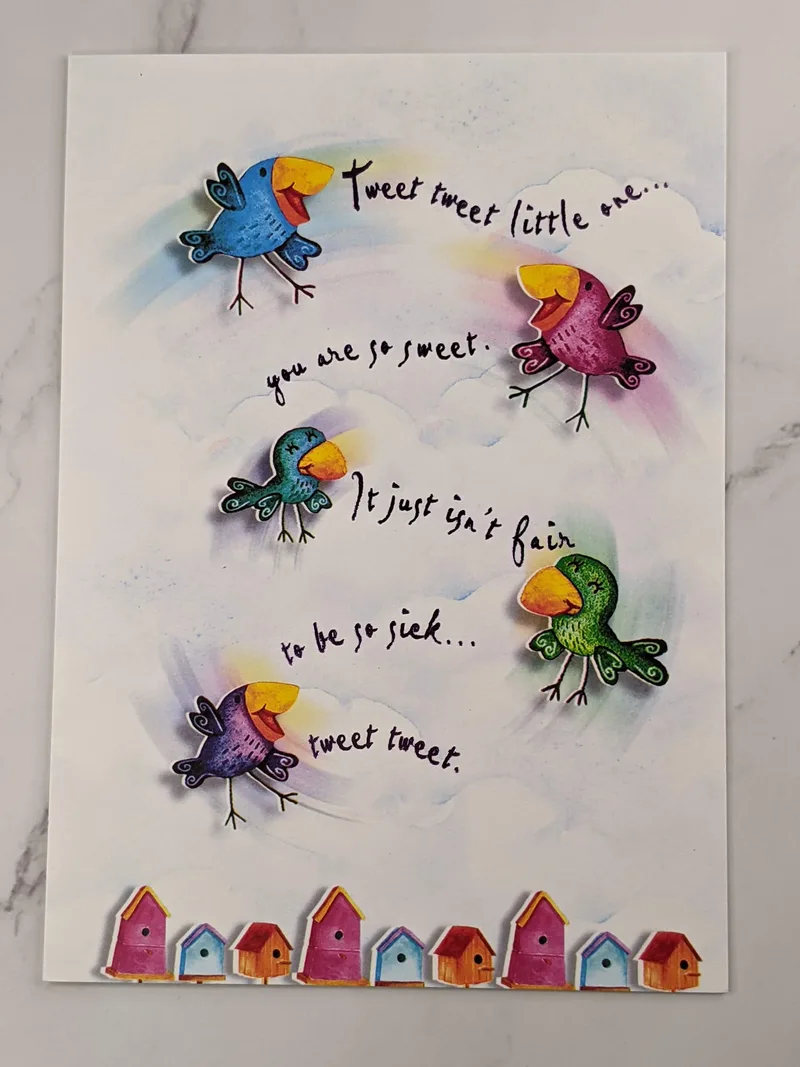 Tweet tweet little one...
you are so sweet.
It just isn't fair
to be so sick...
tweet tweet.